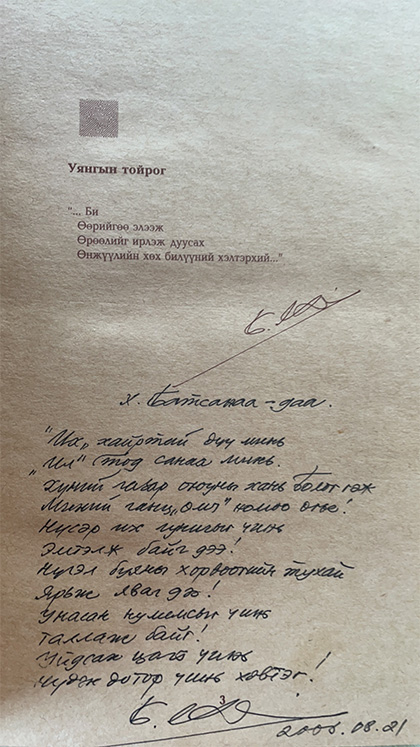 Уянгын тойрог
"... Би
Өөрийгөө элээж
Өрөөлийг ирлэж дуусах
Өнжүүлийн хөх билүүний хэлтэрхий..."
Х. Батсанаа-даа.
"Их" хайртай дүү минь
"Ил" тод санаа минь.
Хүний гавар оюуны хань болог гэж
Миний ганц номоо өгье!
их гунигийг чинь
Элтэлж байг дээ!
Нүгэл буяны хорвоогийн тухай
Ярьж яваг дээ!
Унасан нулимсыг чинь
Таллаж байг!
Уйдсан цагт чинь
дотор чинь хэвтэг!
3
2005.08.21